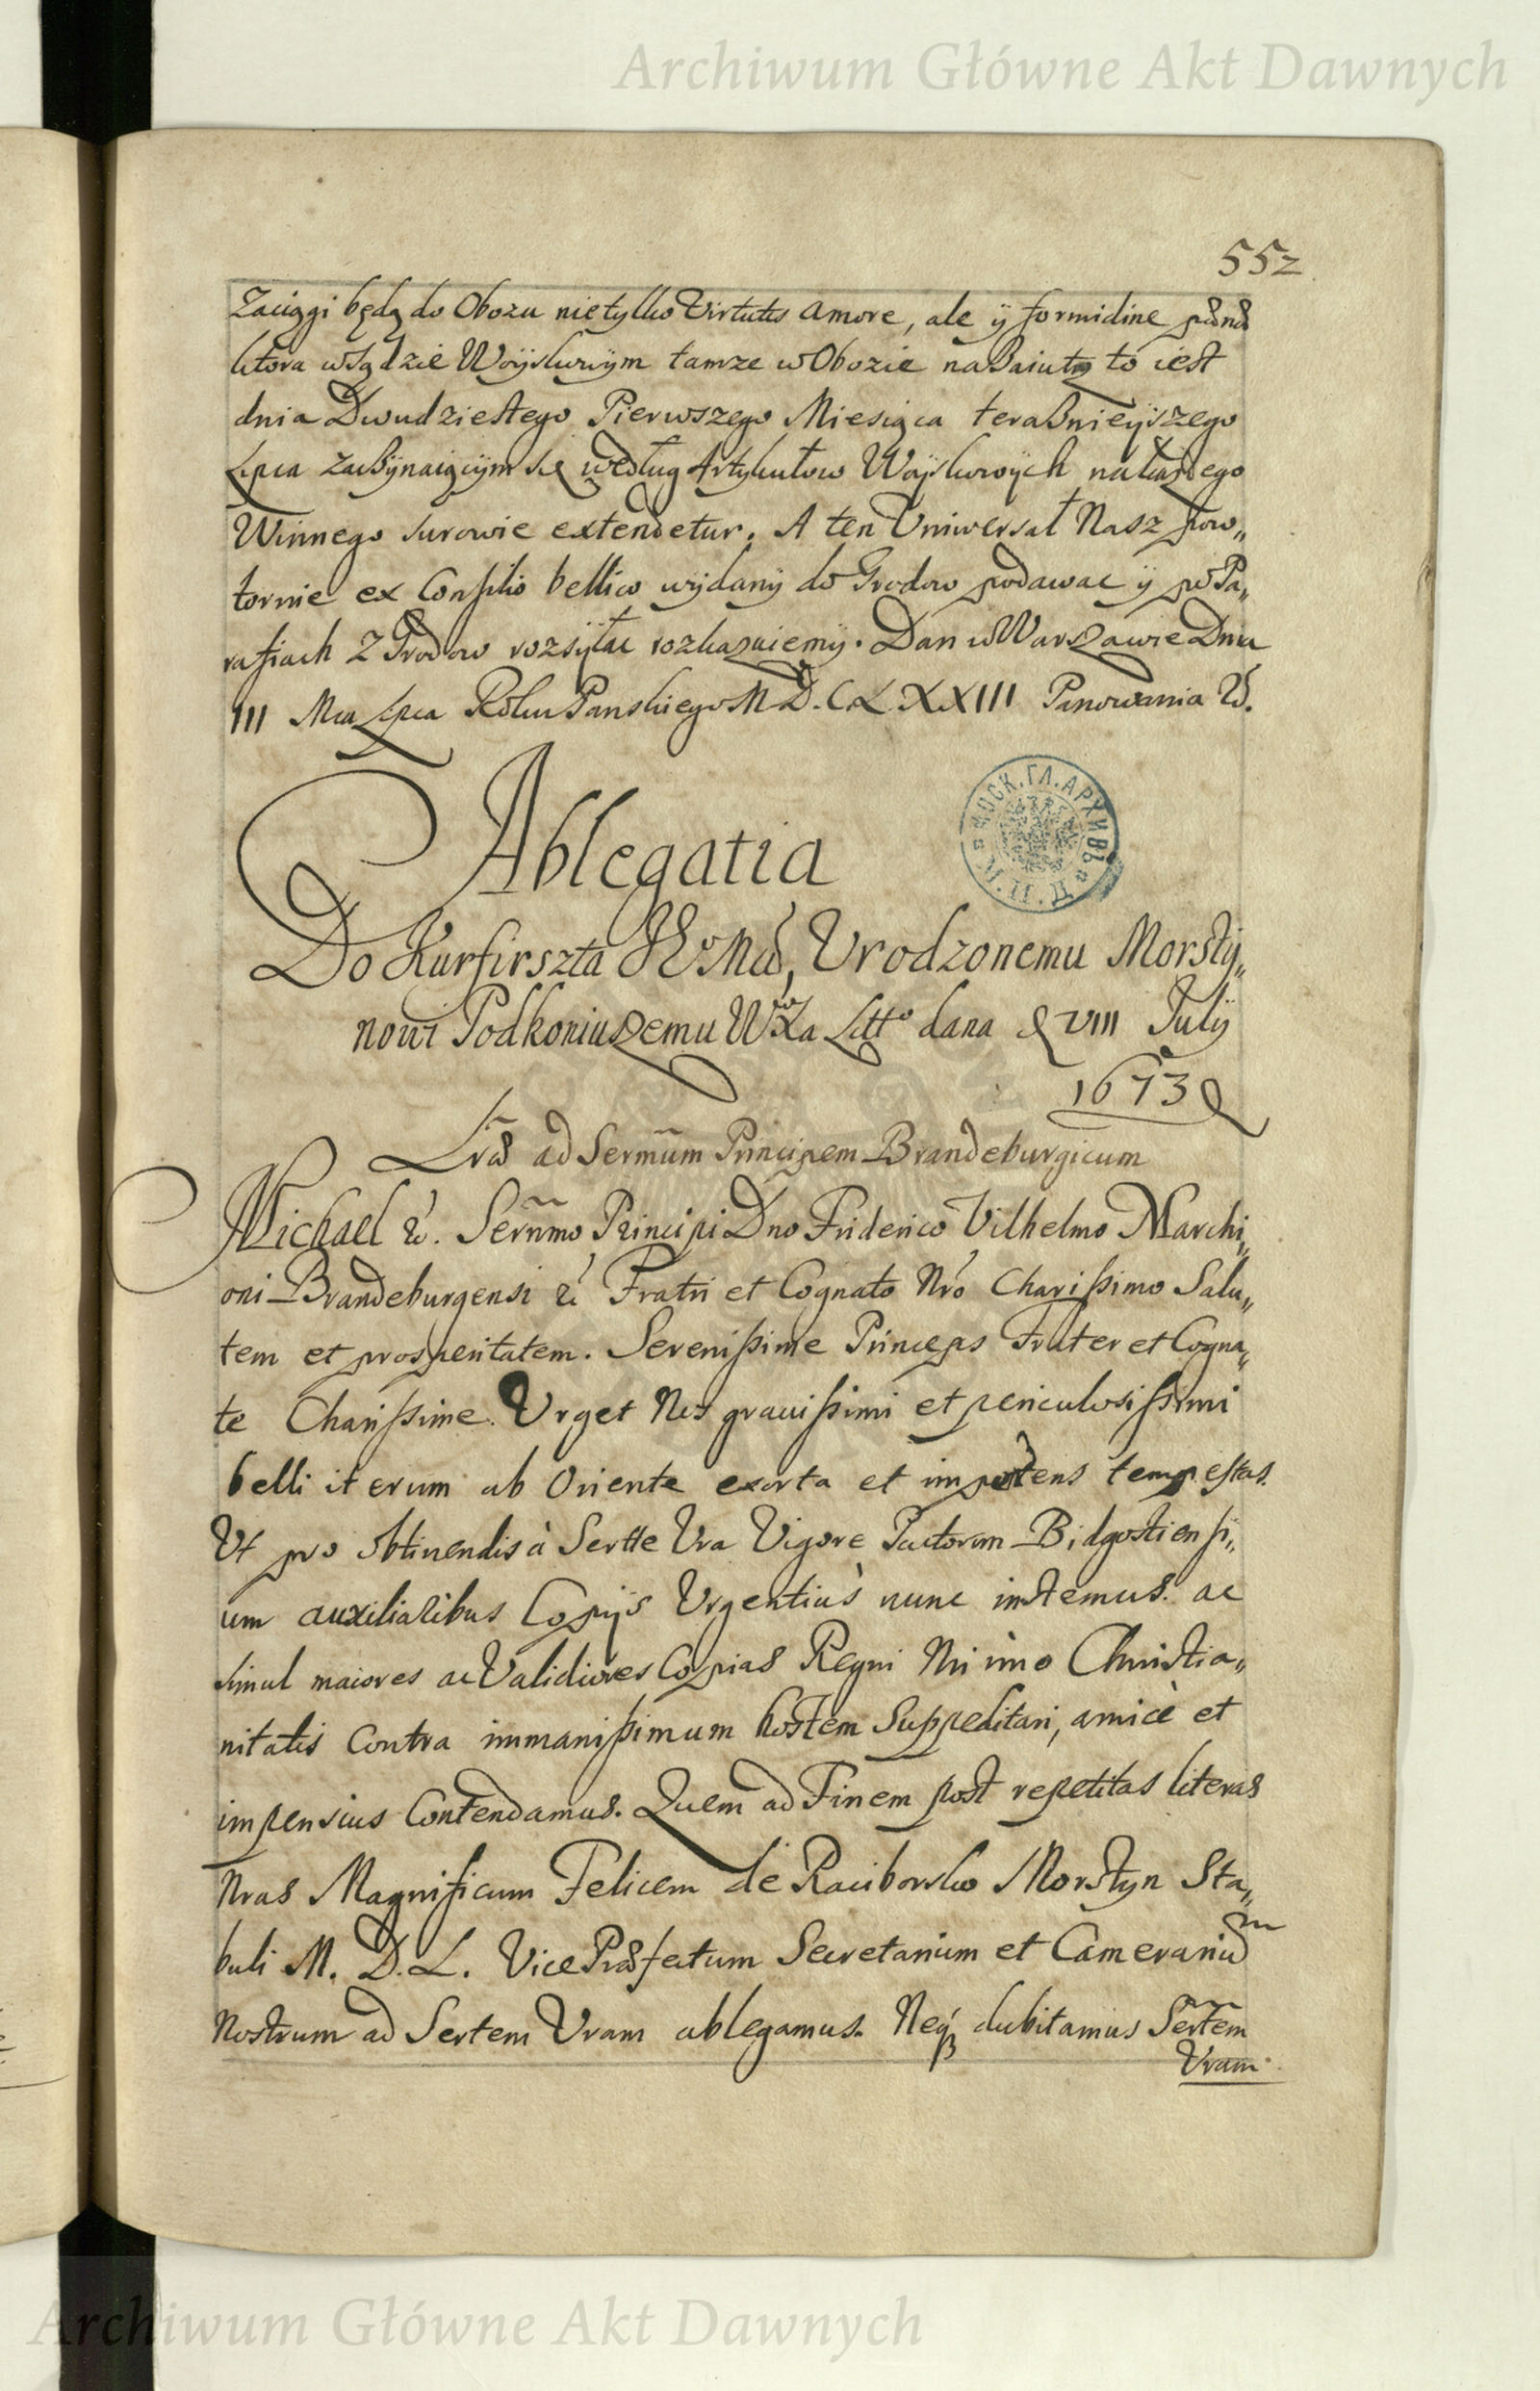 Archiwum Główne Akt Dawnych
552
Zaciągi będą do Obozu nie tylko Virtutis amore, ale ÿ formidine pænæ
ktora w Sądzie Woÿskowÿm tamze w Obozie na to iest
dnia Dwudziestego Pierwszego Miesiąca teraßnieÿszego
Lipca zaczÿnaiącÿm się według Artykułow Woÿskowÿch na każdego
Winnego surowie extendetur. A ten Uniwersał Nasz pow„
tornie ex Consilio bellico wÿdanÿ do Grodow podawac ÿ po Pa„
rafiach Z Grodow rozsÿłac rozkazuiemÿ. Dan w Warszawie Dnia
III Mca Lipca Roku Panskiego M D. C L XXIII Panowania &.
Ablegatia
МОСК. ГЛ. АРХИВЪ
Do Kurfirszta Mci, Urodzonemu Morsty„
nowi Podkoniuszemu WXLa Litto dana VIII Julÿ
1673
Lræ ad Sermum Principem Brandeburgicum
Michael &. Sernmo Principi Dno Friderico Vilhelmo Marchi„
oni Brandeburgensi & Fratri et Cognato Nro Charißimo Salu„
tem et prosperitatem. Serenißime Princeps Frater et Cogna„
te Charißime. Urget Nos grauißimi et periculosißimi
belli iterum ab Oriente exorta et impotens tempestas.
Ut pro obtinendis à Sertte Vra Vigore Pactorum Bidgostienßi„
um auxiliaribus Copijs Urgentius nunc instemus. ac
simul maiores ac Validiores Copias Regni Nri imo Christia„
nitatis Contra immanißimum hostem Suppeditari, amicè et
impensius Contendamus. Quem ad Finem post repetitas literas
Nras Magnificum Felicem de Raciborsko Morstyn Sta„
buli M. D. L. Vice Præfectum Secretarium et Camerariũm
Nostrum ad Sertem Vram ablegamus. Neq3 dubitamus Sertem
Vram
Archiwum Główne Akt Dawnych